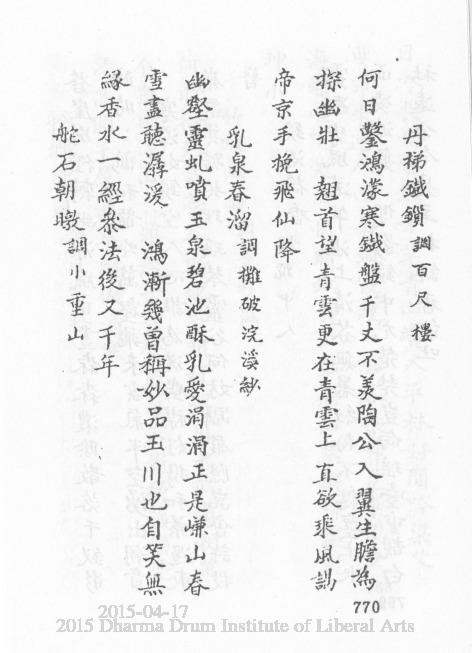 丹梯鐵鎖調百尺樓
何日鑿鴻濛寒鐵盤千丈不羨陶公入翼生膽為
探幽壯 翹首望青雲更在青雲上 直欲乘風謁
帝京手挽飛仙降
乳泉春溜調攤破浣溪紗
幽壑靈虬噴玉泉碧池酥乳愛涓涓正是嵰山春
雪盡聽潺湲 鴻漸幾曾稱妙品玉川也自笑無
緣香水一經參法後又千年
舵石朝暾調小重山
770
2015-04-17
2015 Dharma Drum Institute of Liberal Arts